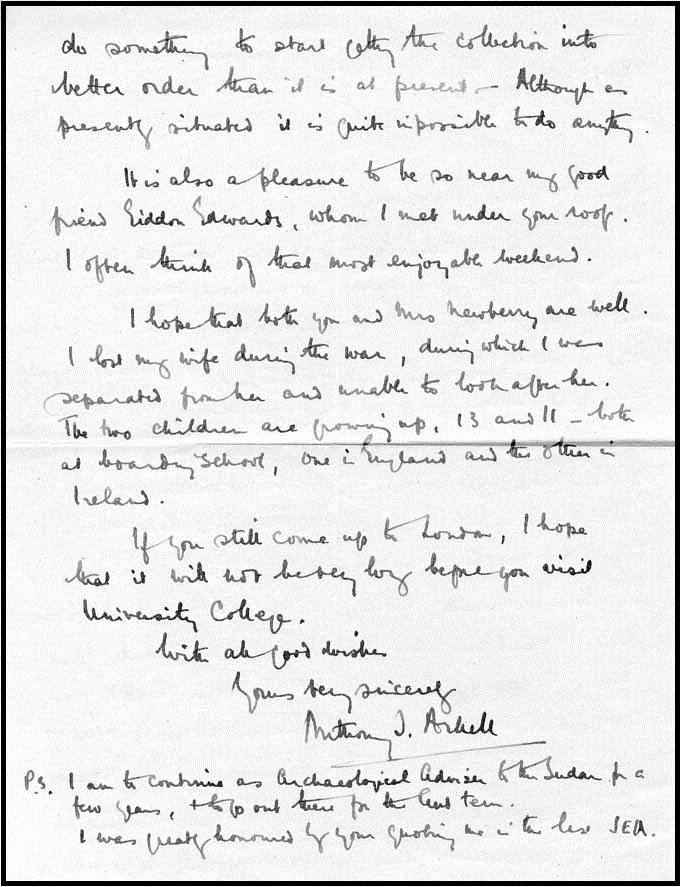 do something to start getting the collection into
better order than it is at present – Although as
presently situated it is quite impossible to do anything.
It is also a pleasure to be so near my good
friend Eiddon Edwards, whom I met under your roof.
I often think of that most enjoyable weekend.
I hope that both you and Mrs Newberry are well.
I lost my wife during the war, during which I was
separated from her and unable to look after her.
The two children are growing up, 13 and 11 – both
at boarding school, one in England and the other in
Ireland.
If you still come up to London, I hope
that it will not be very long before you visit
University College.
With all good wishes
Yours very sincerely
Anthony J. Arkell
P.S. I am to continue as Archaeological Adviser to the Sudan for a
few years, + to go out there for the Lent term.
I was greatly honoured by your quoting me in the last JEA.